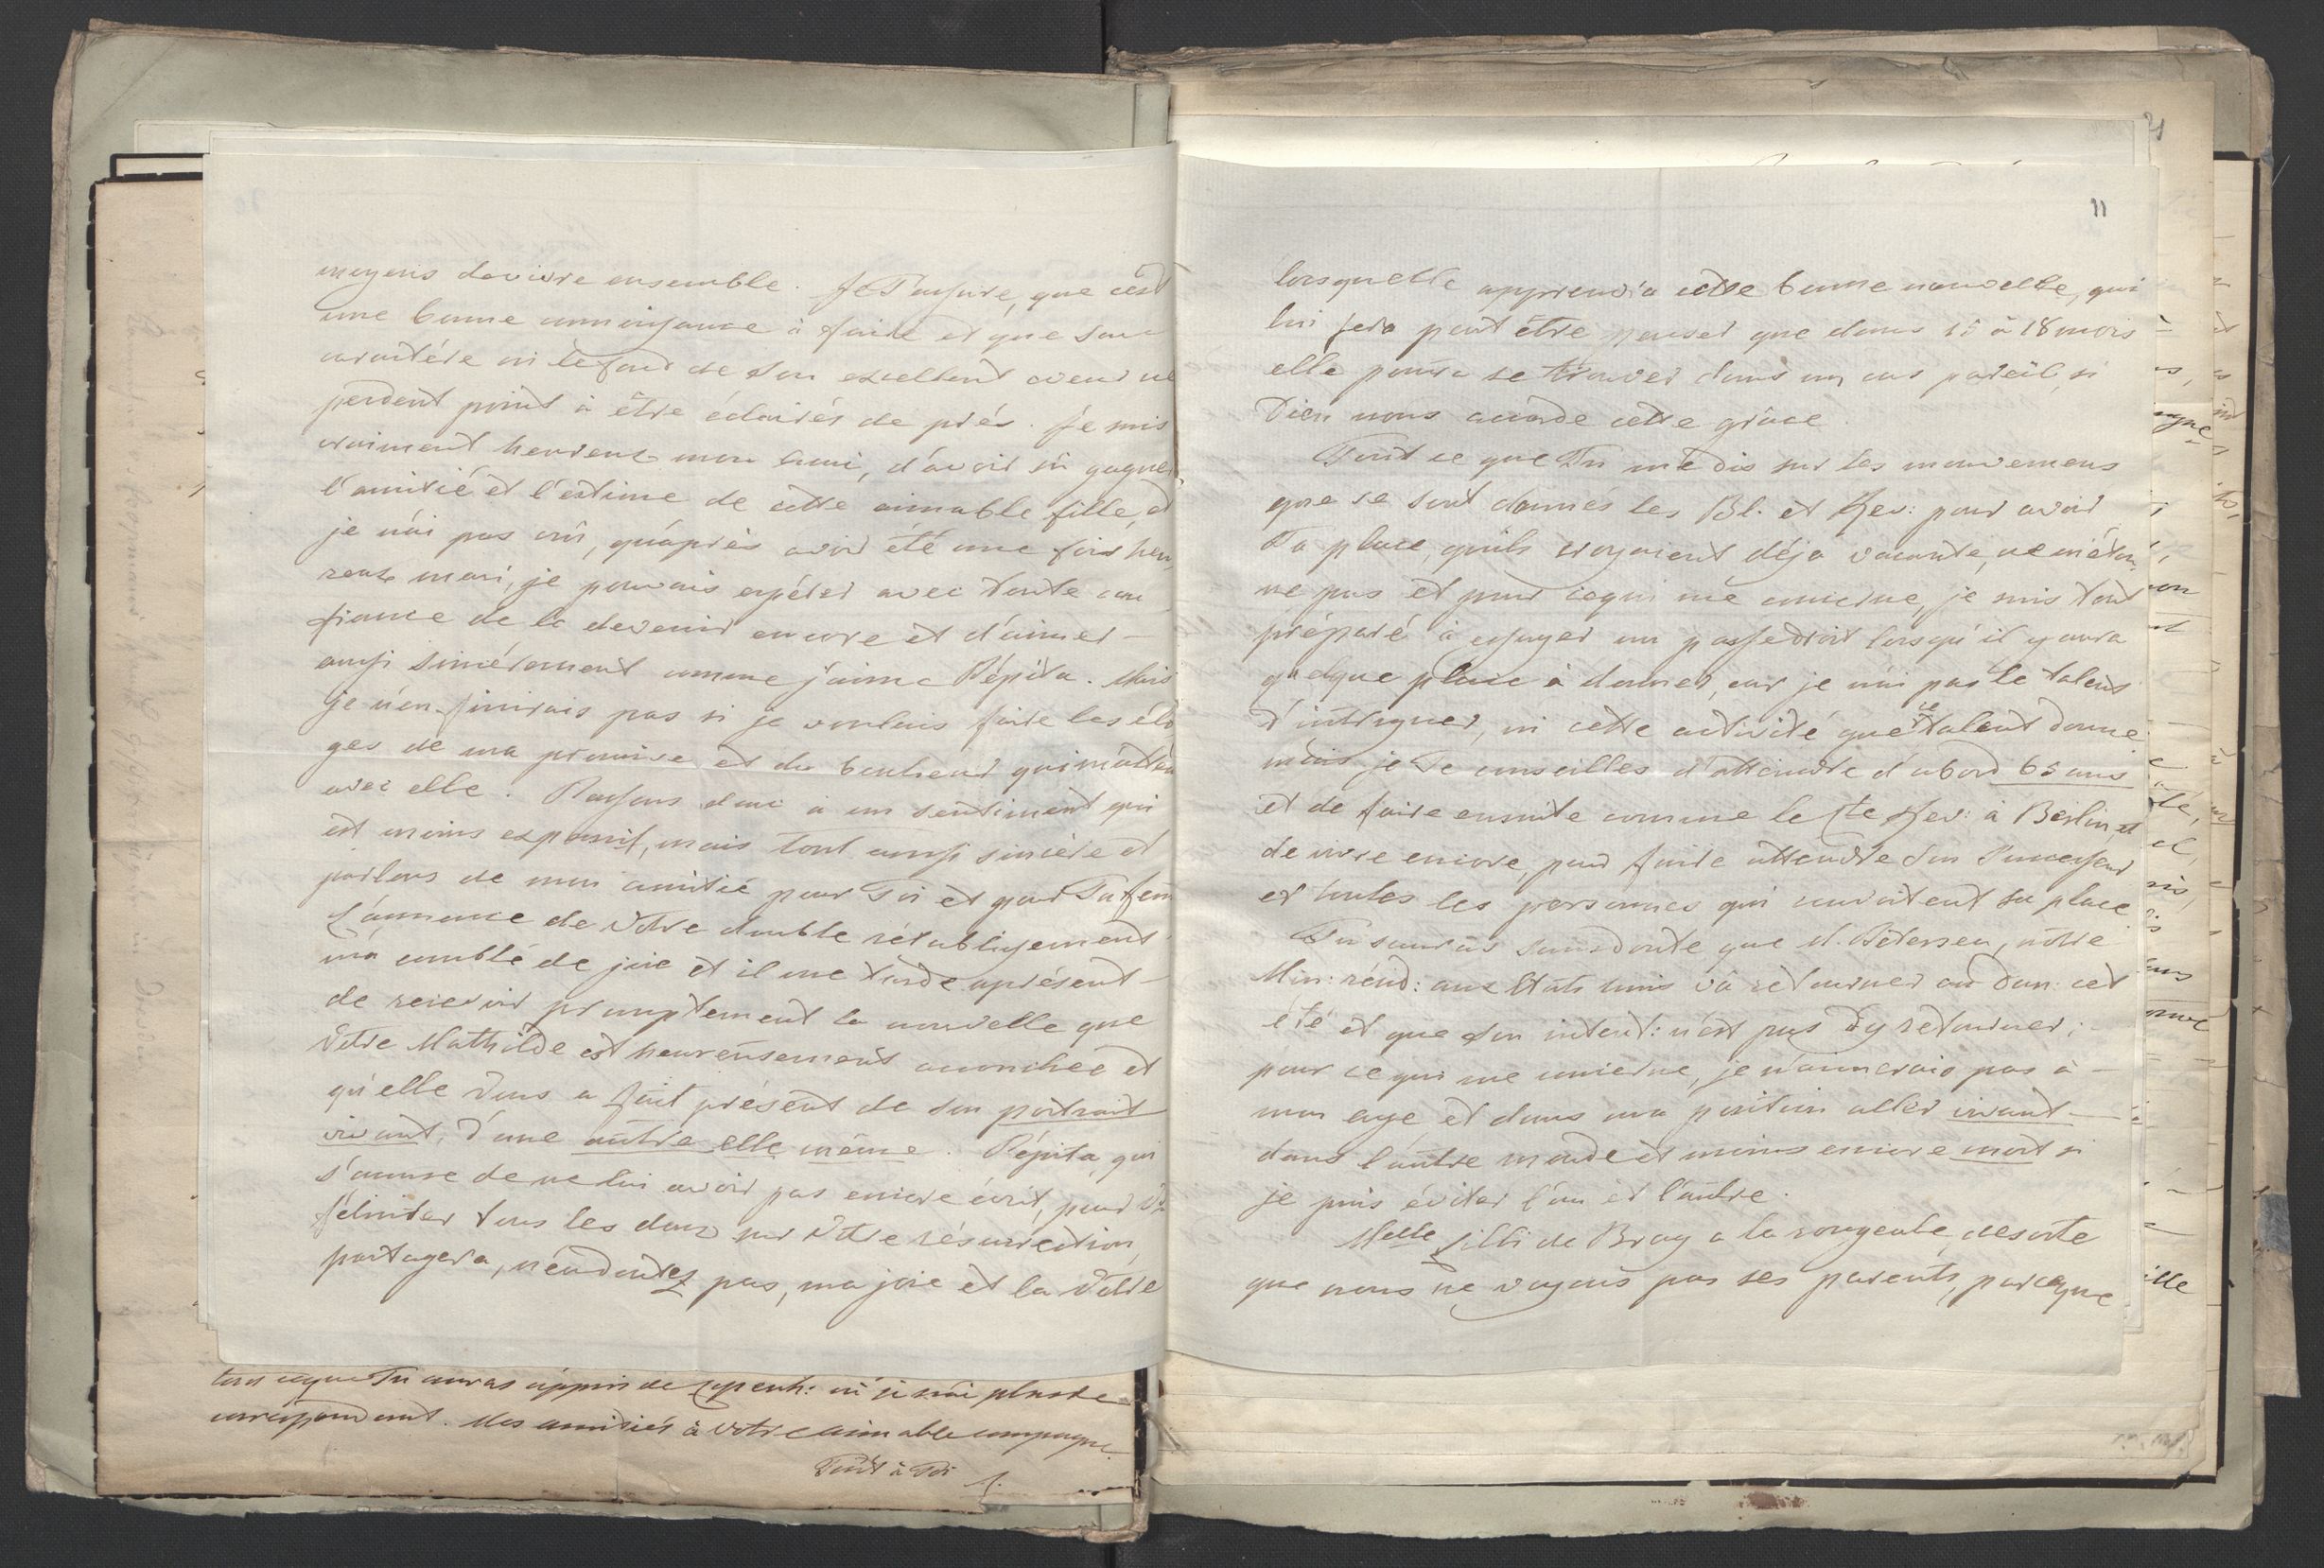 moyens de vivre ensemble. Je T'assure, que c'est
une bonne connoissance à faire et que son
caractére ni le fond de son excellent coeur ne
perdent point à être éclairés de prés. Je suis
vraiment heureux mon ami, d'avoir sû gagner
l'amitié et l'estime de cette aimable fille, et
je n'ai pas crû, qu'après avoir été une fois heu
reux mari, je pouvais espérer avec toute con
fiance de le devenir encore et d'aimer
aussi sincérement comme j'aime Pépita. Mais
je n'en finirais pas si je voulais faire les élo
ges de ma promise et du bonheur qui m'attend
avec elle. Passons donc à un sentiment qui
est moins expansif, mais tout aussi sincère et
parlons de mon amitié pour Toi et pour Ta fem
L'annonce de Votre double rétablissement
m'a comblé de joie et il me tarde aprésent
de recevoir promptement la nouvelle que
Votre Mathilde est heureusement accouchée et
qu'elle Vous a fait présent de son portrait
vivant, d'une autre elle même. Pépita, qui
s'accuse de ne lui avoir pas encore écrit, pour Vs
féliciter tous les deux sur Votre résurrection,
partagera, n'en doutez pas, ma joie et la Votre
11
lorsquelle apprendra cette bonne nouvelle, qui
lui fera peut être penser que dans 15 à 18 mois
elle pourra se trouver dans un cas pareil, si
Dieu nous accorde cette grâce.
Tout ce que Tu me dis sur les mouvemens
que se sont donnés les Bl. et Rev: pour avoir
Ta place, quils croyaient déja vacante, ne m'éton
ne pas et pour cequi me concerne, je suis tout
préparé à essuyer un passedroit lorsqu'il y aura
quelque place à donner, car je n'ai pas le talent
d'intriguer, ni cette activité que ce talent donne
mais je Te conseilles d'attendre d'abord 65 ans
et de faire ensuite comme le Cte Rev: à Berlin, et
de vivre encore, pour faire attendre son Successeur
et toutes les personnes qui convoitent sa place
Tu sauras sansdoute que M. Pedersen, notre
Min: résid: aux Etats Unis va retourner en Dan: cet
été et que son intent: n'est pas d'y retourner;
pour ce qui me concerne, je n'aimerais pas à
mon age et dans ma position aller vivant
dans l'autre monde et moins encore mort si
je puis éviter l'un et l'autre.
Melle Lilli de Bray a la rougeole, desorte
que nous ne voyons pas ses parents, parceque
ceque Tu auras appris de je n'ai plus de
correspondant. Mes amitiés à Votre aimable compagne
Tout à Toi